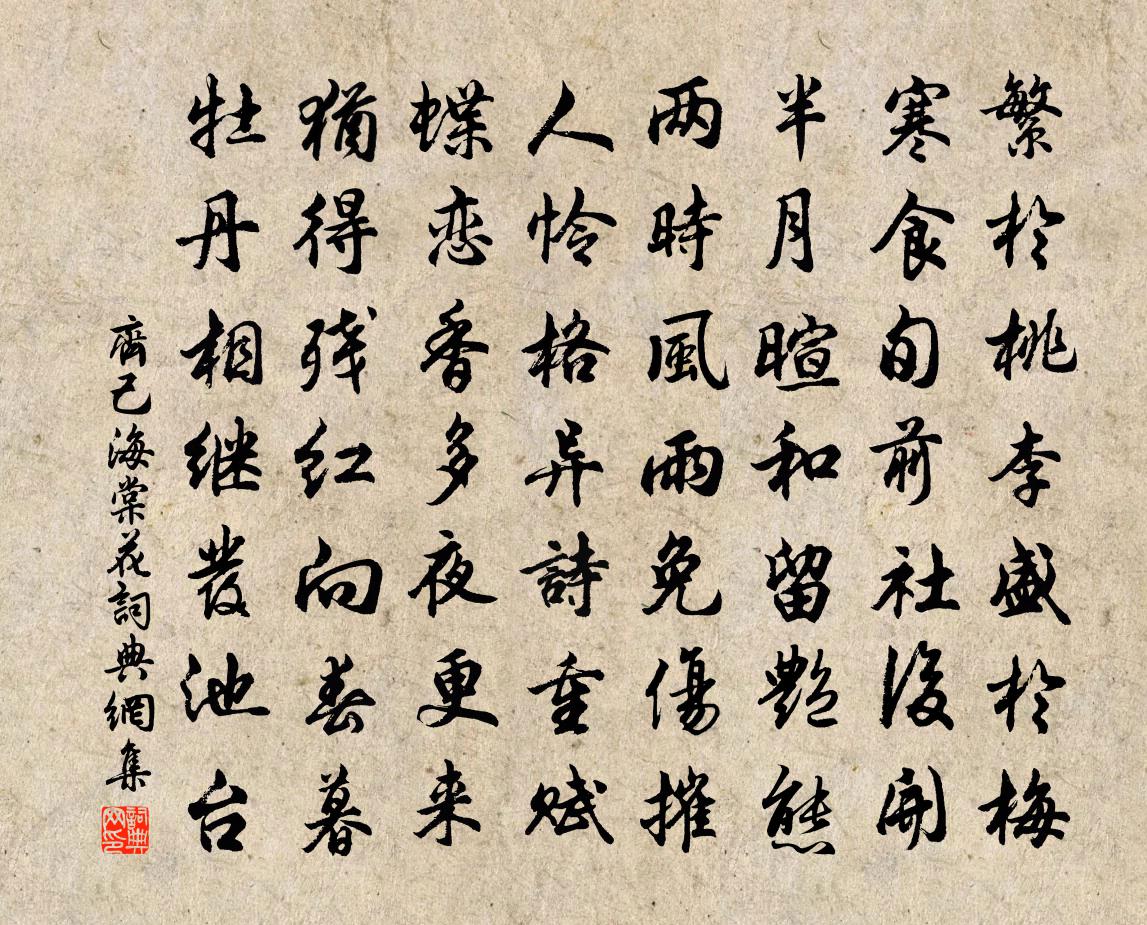 繁於桃李盛於梅
寒食旬前社後開
半月暄和留艷態
两時風雨免傷摧
人怜格异詩重賦
蝶恋香多夜更来
猶得残红向春暮
牡丹相继發池台
齊己海棠花詞典網集
詞典
网印